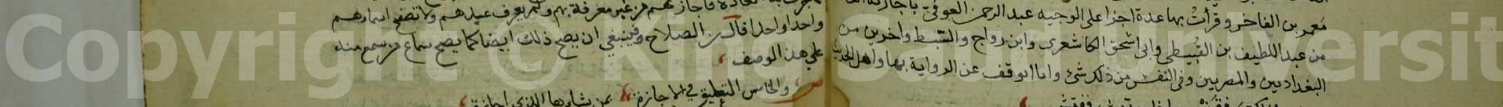 معمر بن الفاخر وقرأت بها عدة اجزا على الوجيه عبد الرحمن العوفي باجازته
من عبد اللطيف بن القبيطي وابي اسحق الكاشغري وابن رواج والسبط واخرين من
البغداديين والمصريين وفي النفس من ذلك شئ وانا اتوقف عن الرواية بها واهل الحديث
فاجاز لهم من غير معرفة بهم ولم يعرف عددهم ولا تصفح اسماءهم
واحدا واحدا قال بن الصلاح فينبغي ان يصح ذلك ايضا كما يصح سماع من سمع منه
على هذا الوصف
والخامس التعليق في الاجازة
Copyright © King
Universit